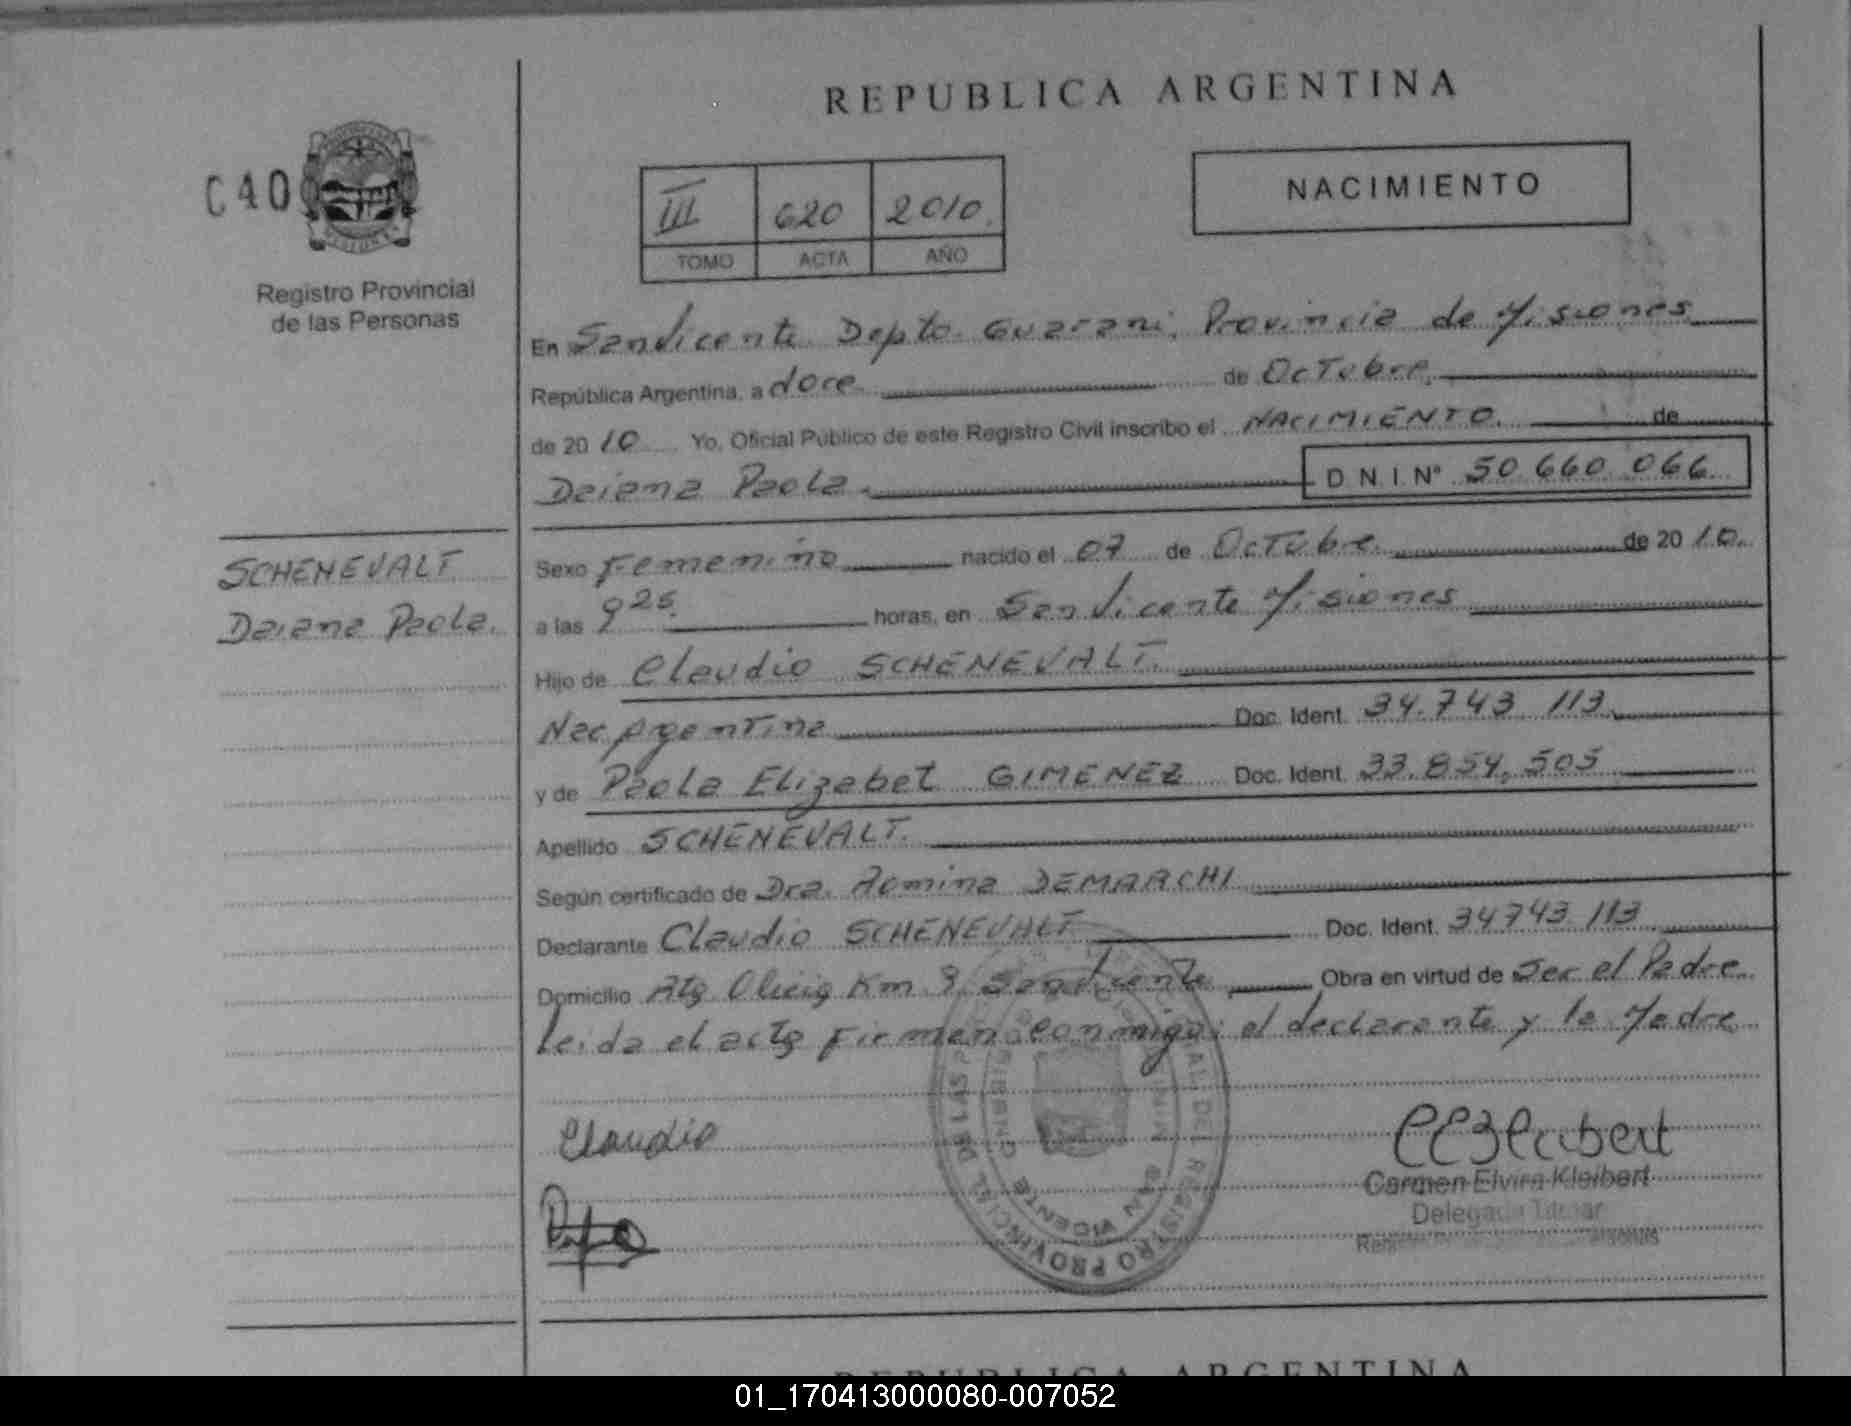 REPUBLICA ARGENTINA
C40
III 620 2010
TOMO ACTA AÑO
NACIMIENTO
Registro Provincial
de las Personas
En San Vicente Depto. Guarani, Provincia de Misiones
República Argentina, a doce de Octubre
de 2010 Yo, Oficial Público de este Registro Civil inscribo el NACIMIENTO de
Daiana Paola D N I Nº 50.660.066
SCHENEVALT
Daiana Paola.
Sexo Femenino nacido el 07 de Octubre de 2010.
a las 9 25 horas, en San Vicente Misiones
Hijo de Claudio SCHENEVALT.
Nac Argentina Doc. Ident. 34.743.113
y de Paola Elizabet GIMENEZ Doc. Ident. 33.854.505
Apellido SCHENEVALT.
Según certificado de Dra. Romina DEMARCHI
Declarante Claudio SCHENEVALT Doc. Ident. 34743.113
Domicilio Km 9 San Vicente Obra en virtud de Ser el Padre
Leida el acta Firman conmigo: el declarante y la Madre
Claudio
Carmen Elvira Kleibert
Delegada Titular
SAN VICENTE
REGISTRO PROVINCIAL DE LAS
REPUBLICA ARGENTINA
01_170413000080-007052